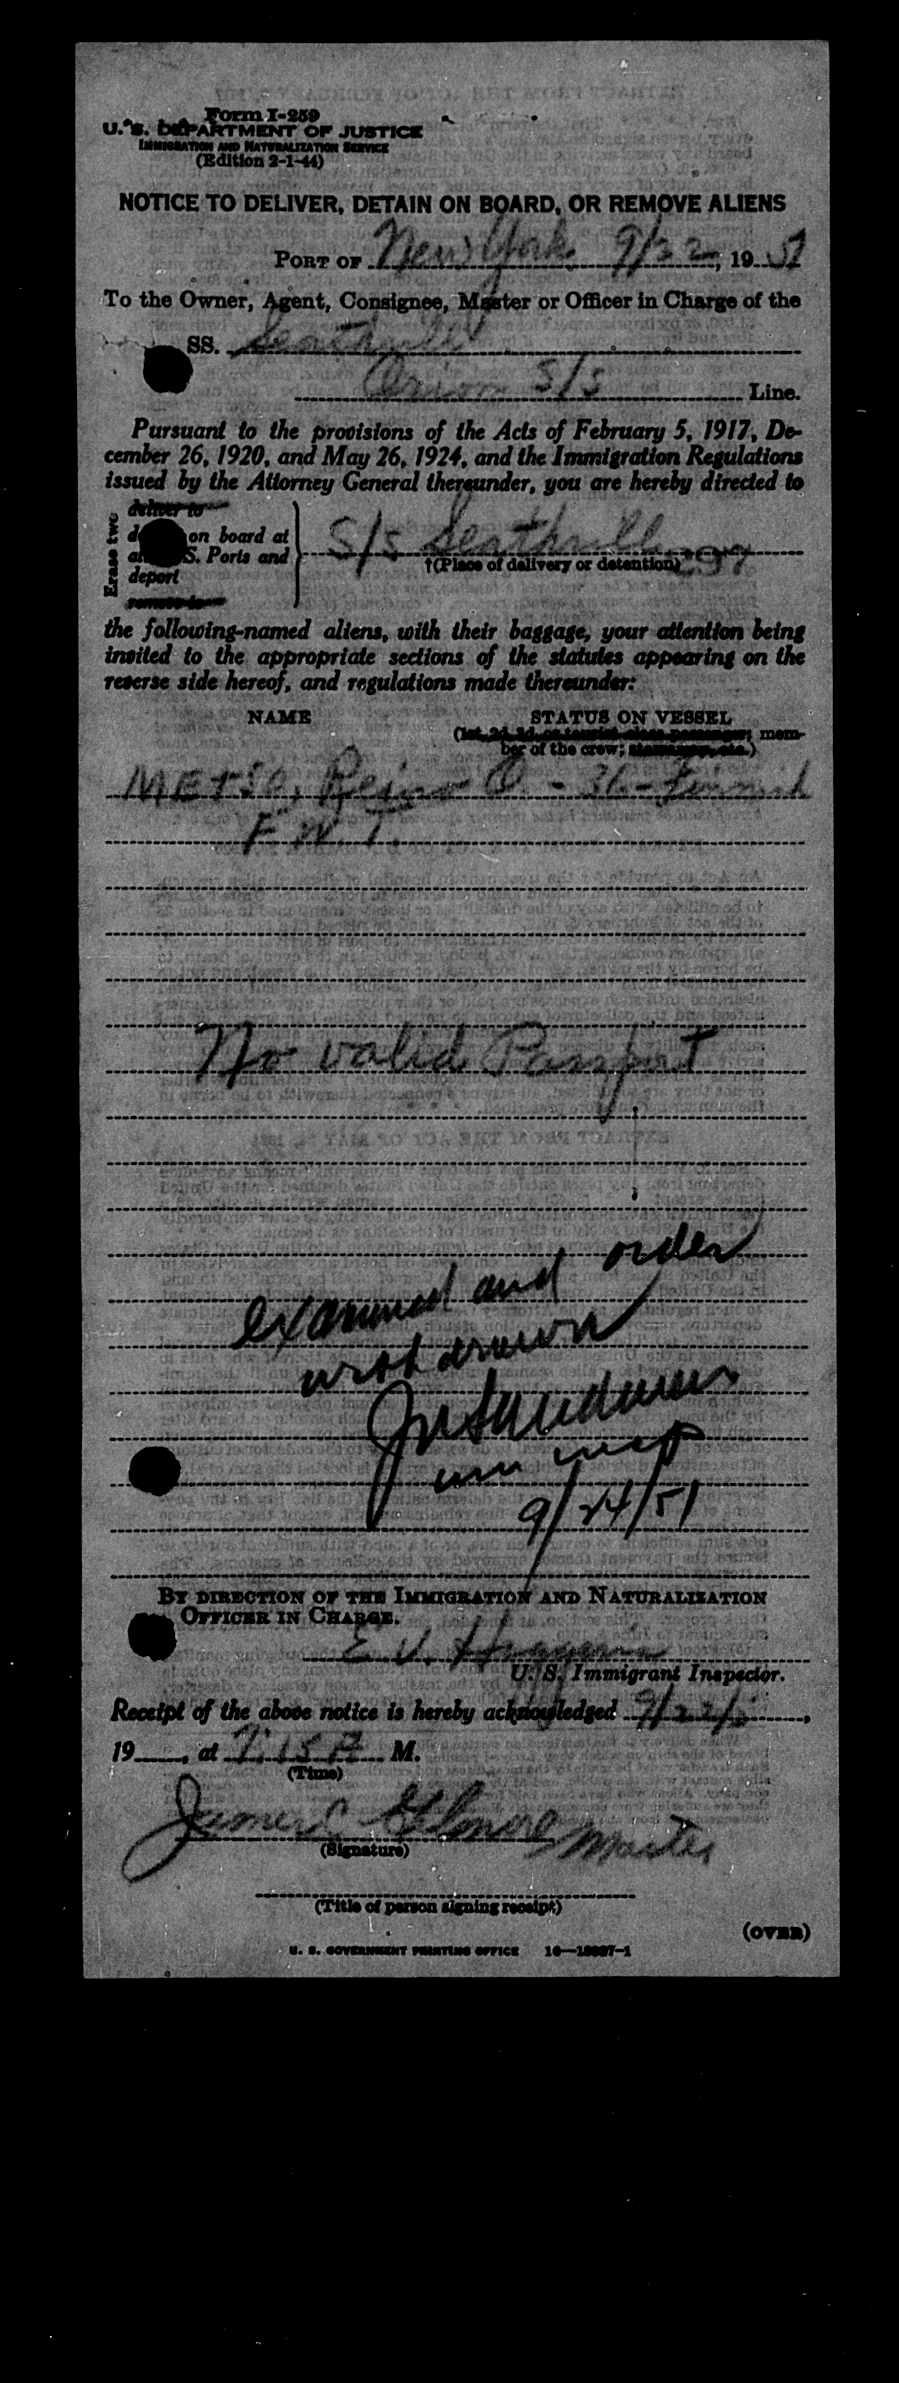 Form I-259
U. S. DEPARTMENT OF JUSTICE
IMMIGRATION AND NATURALIZATION SERVICE
(Edition 2-1-44)
NOTICE TO DELIVER, DETAIN ON BOARD, OR REMOVE ALIENS
PORT OF New York 9/22, 19 51
To the Owner, Agent, Consignee, Master or Officer in Charge of the
SS. Seathrill
Orion S/S Line.
Pursuant to the provisions of the Acts of February 5, 1917, De-
cember 26, 1920, and May 26, 1924, and the Immigration Regulations
issued by the Attorney General thereunder, you are hereby directed to
Erase two
deliver to
on board at
S. Ports and
deport
remove to
S/S Seathrill
†(Place of delivery or detention)
the following-named aliens, with their baggage, your attention being
invited to the appropriate sections of the statutes appearing on the
reverse side hereof, and regulations made thereunder:
NAME STATUS ON VESSEL
(1st, 2d, 3d, or tourist class passenger; mem-
ber of the crew; stowaway, etc.)
METSO, Reino O. - 36 - Finnish
F. W. T.
No valid Passport
examined and order
withdrawn
imm insp
9/24/51
BY DIRECTION OF THE IMMIGRATION AND NATURALIZATION
OFFICER IN CHARGE.
E. V.
U. S. Immigrant Inspector.
Receipt of the above notice is hereby acknowledged 9/22/5,
19, at 7:15 P M.
(Time)
James C Gilmore Master
(Signature)
(Title of person signing receipt)
(OVER)
U. S. GOVERNMENT PRINTING OFFICE 16—18087-1